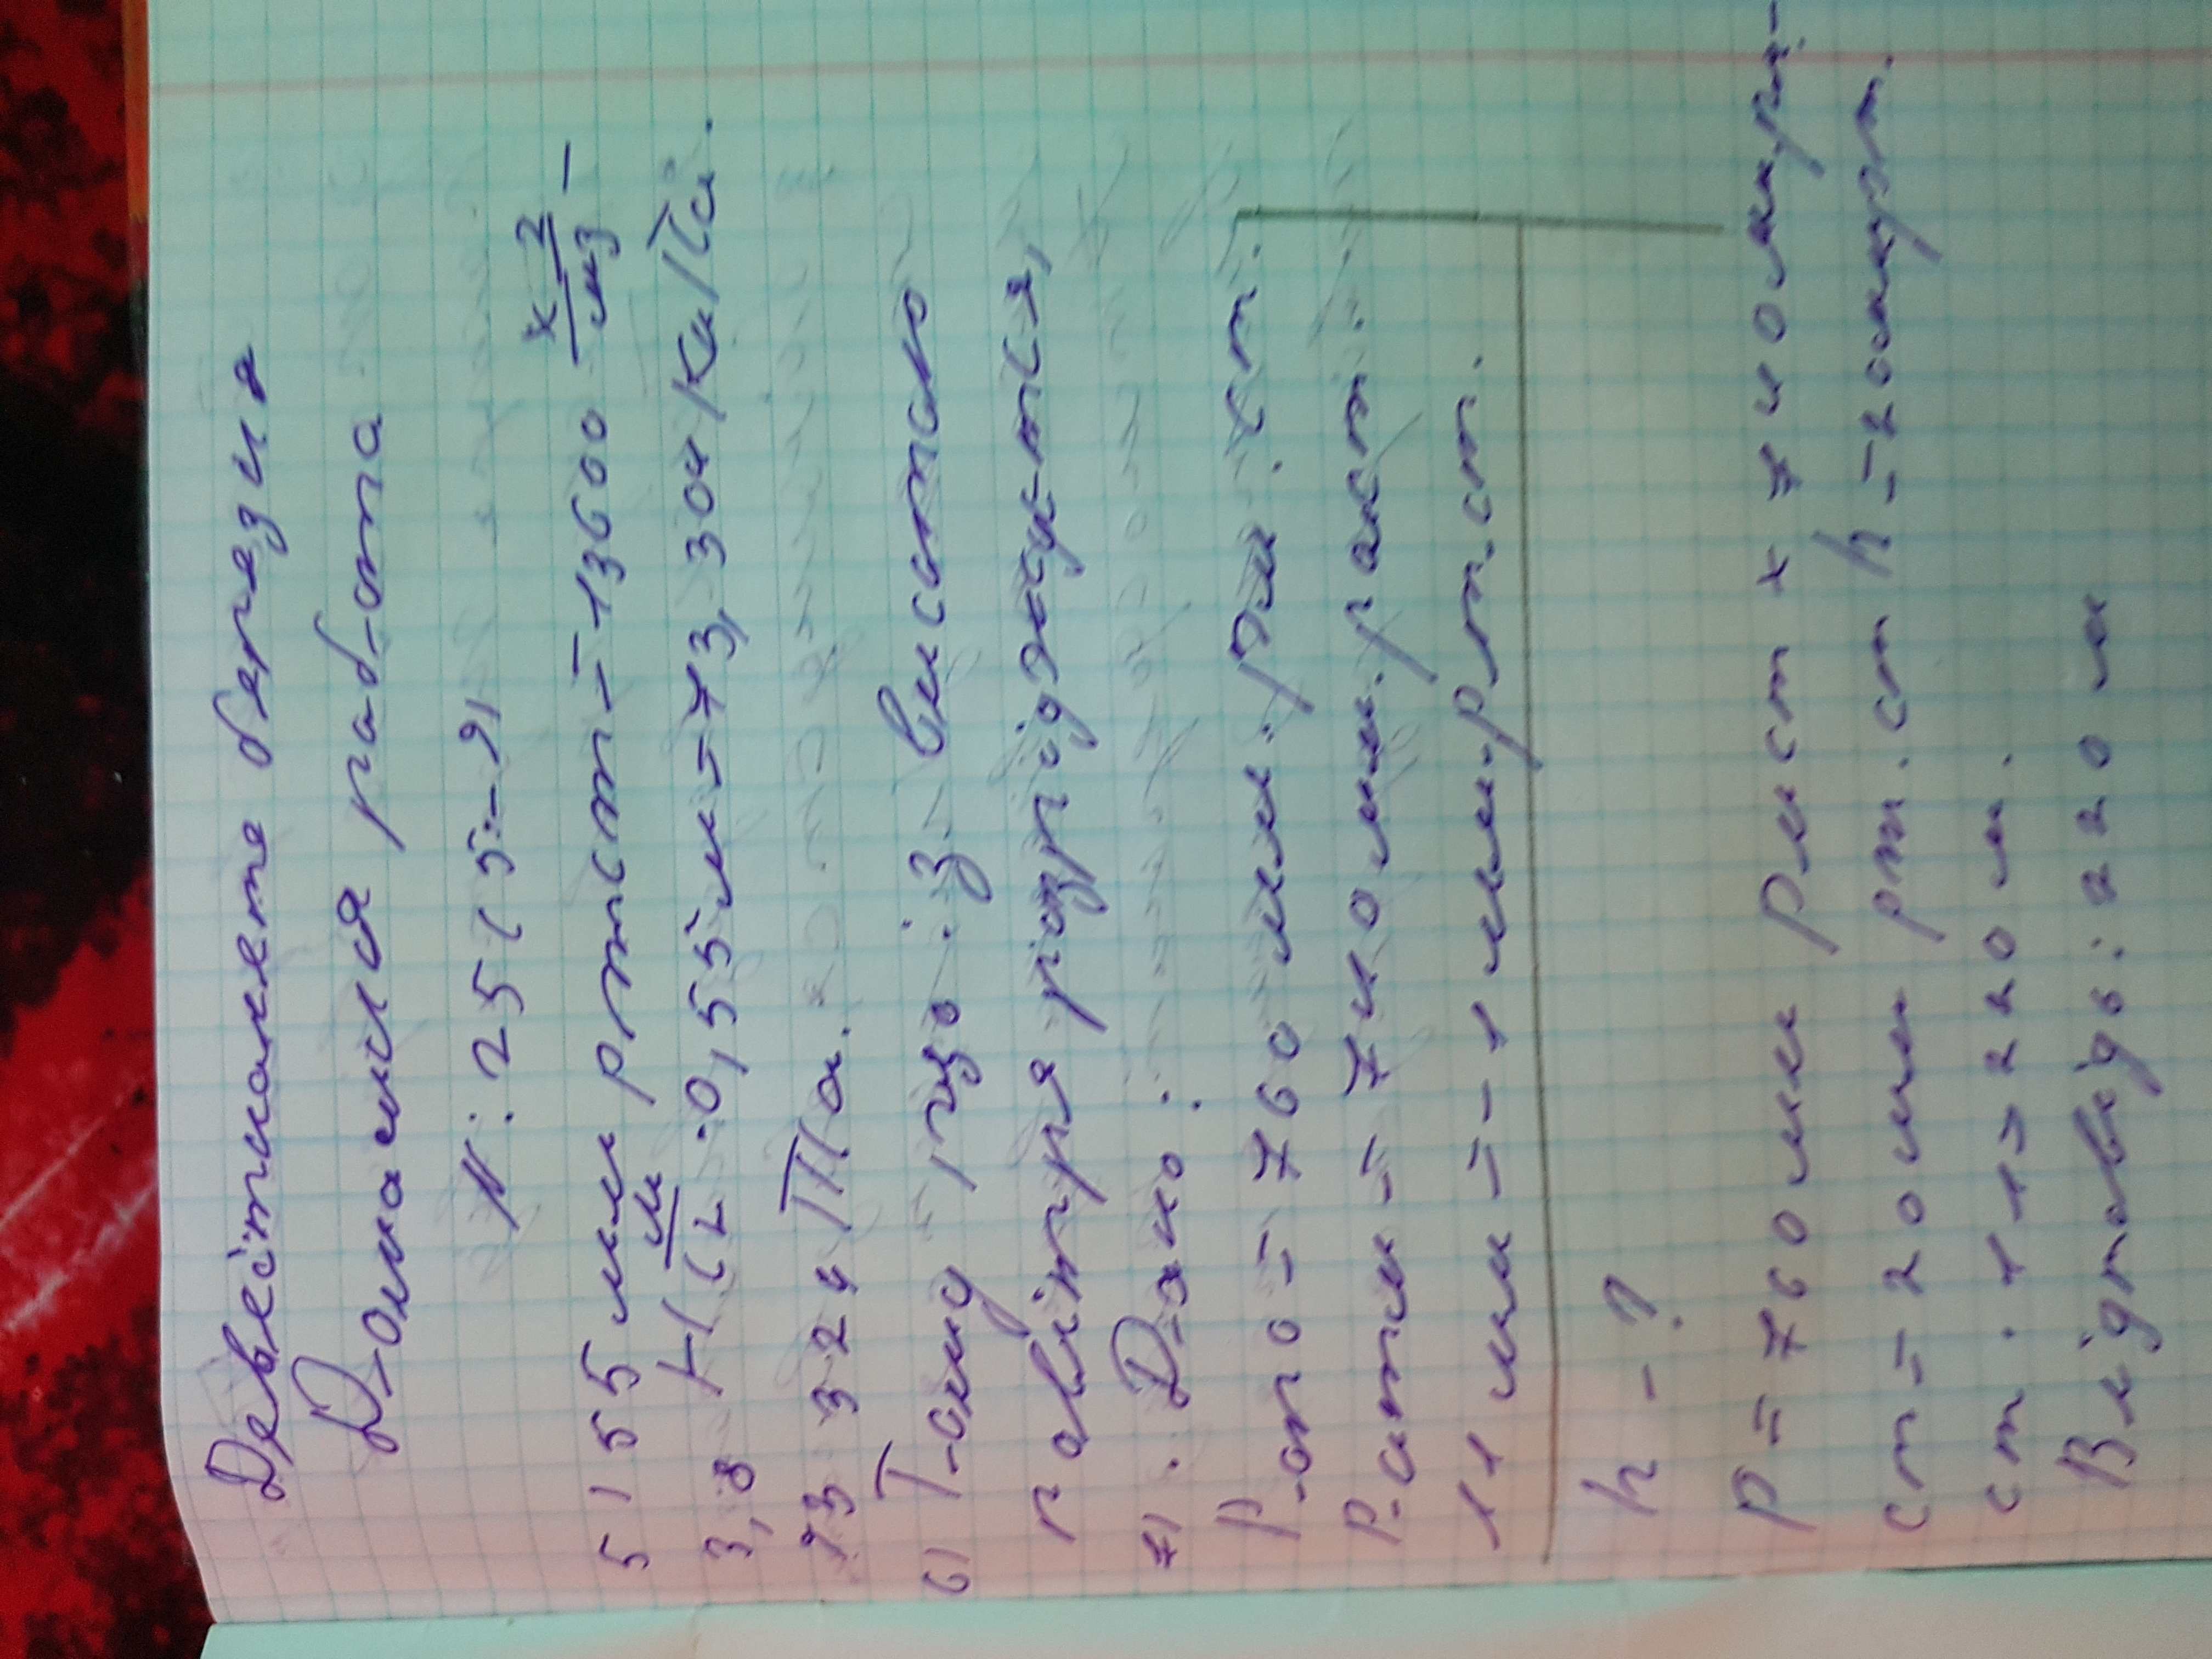 Девëтнокляте березня
Домашня работа
N: 25 (5-9)
5) 55 мм рт ст = 13600 кг/м3 -
3,8 Н/кг · 0,55 м = 73,304 К/Па.
73 324 Па.
6) Тому, що із висотою
повітря розріджується,
7). Дано:
P. = 760 мм. рт. ст.
P. = 740 мм. рт. ст.
11 м = 1 мм. рт. ст.
h - ?
P = 760 мм рт ст - 740 мм. рт.
ст = 20 мм рт. ст h = 20 мм рт.
ст. 11 = 220 м.
Відповідь: 220 м